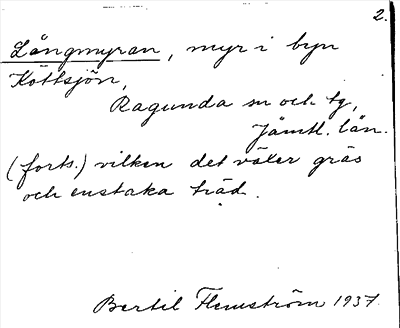 2.
Långmyran, myr i byn
Kottsjön,
Ragunda sn och tg,
Jämtl. län.
(forts.) vilken det växer gräs
och enstaka träd.
Bertil Flemström 1937.